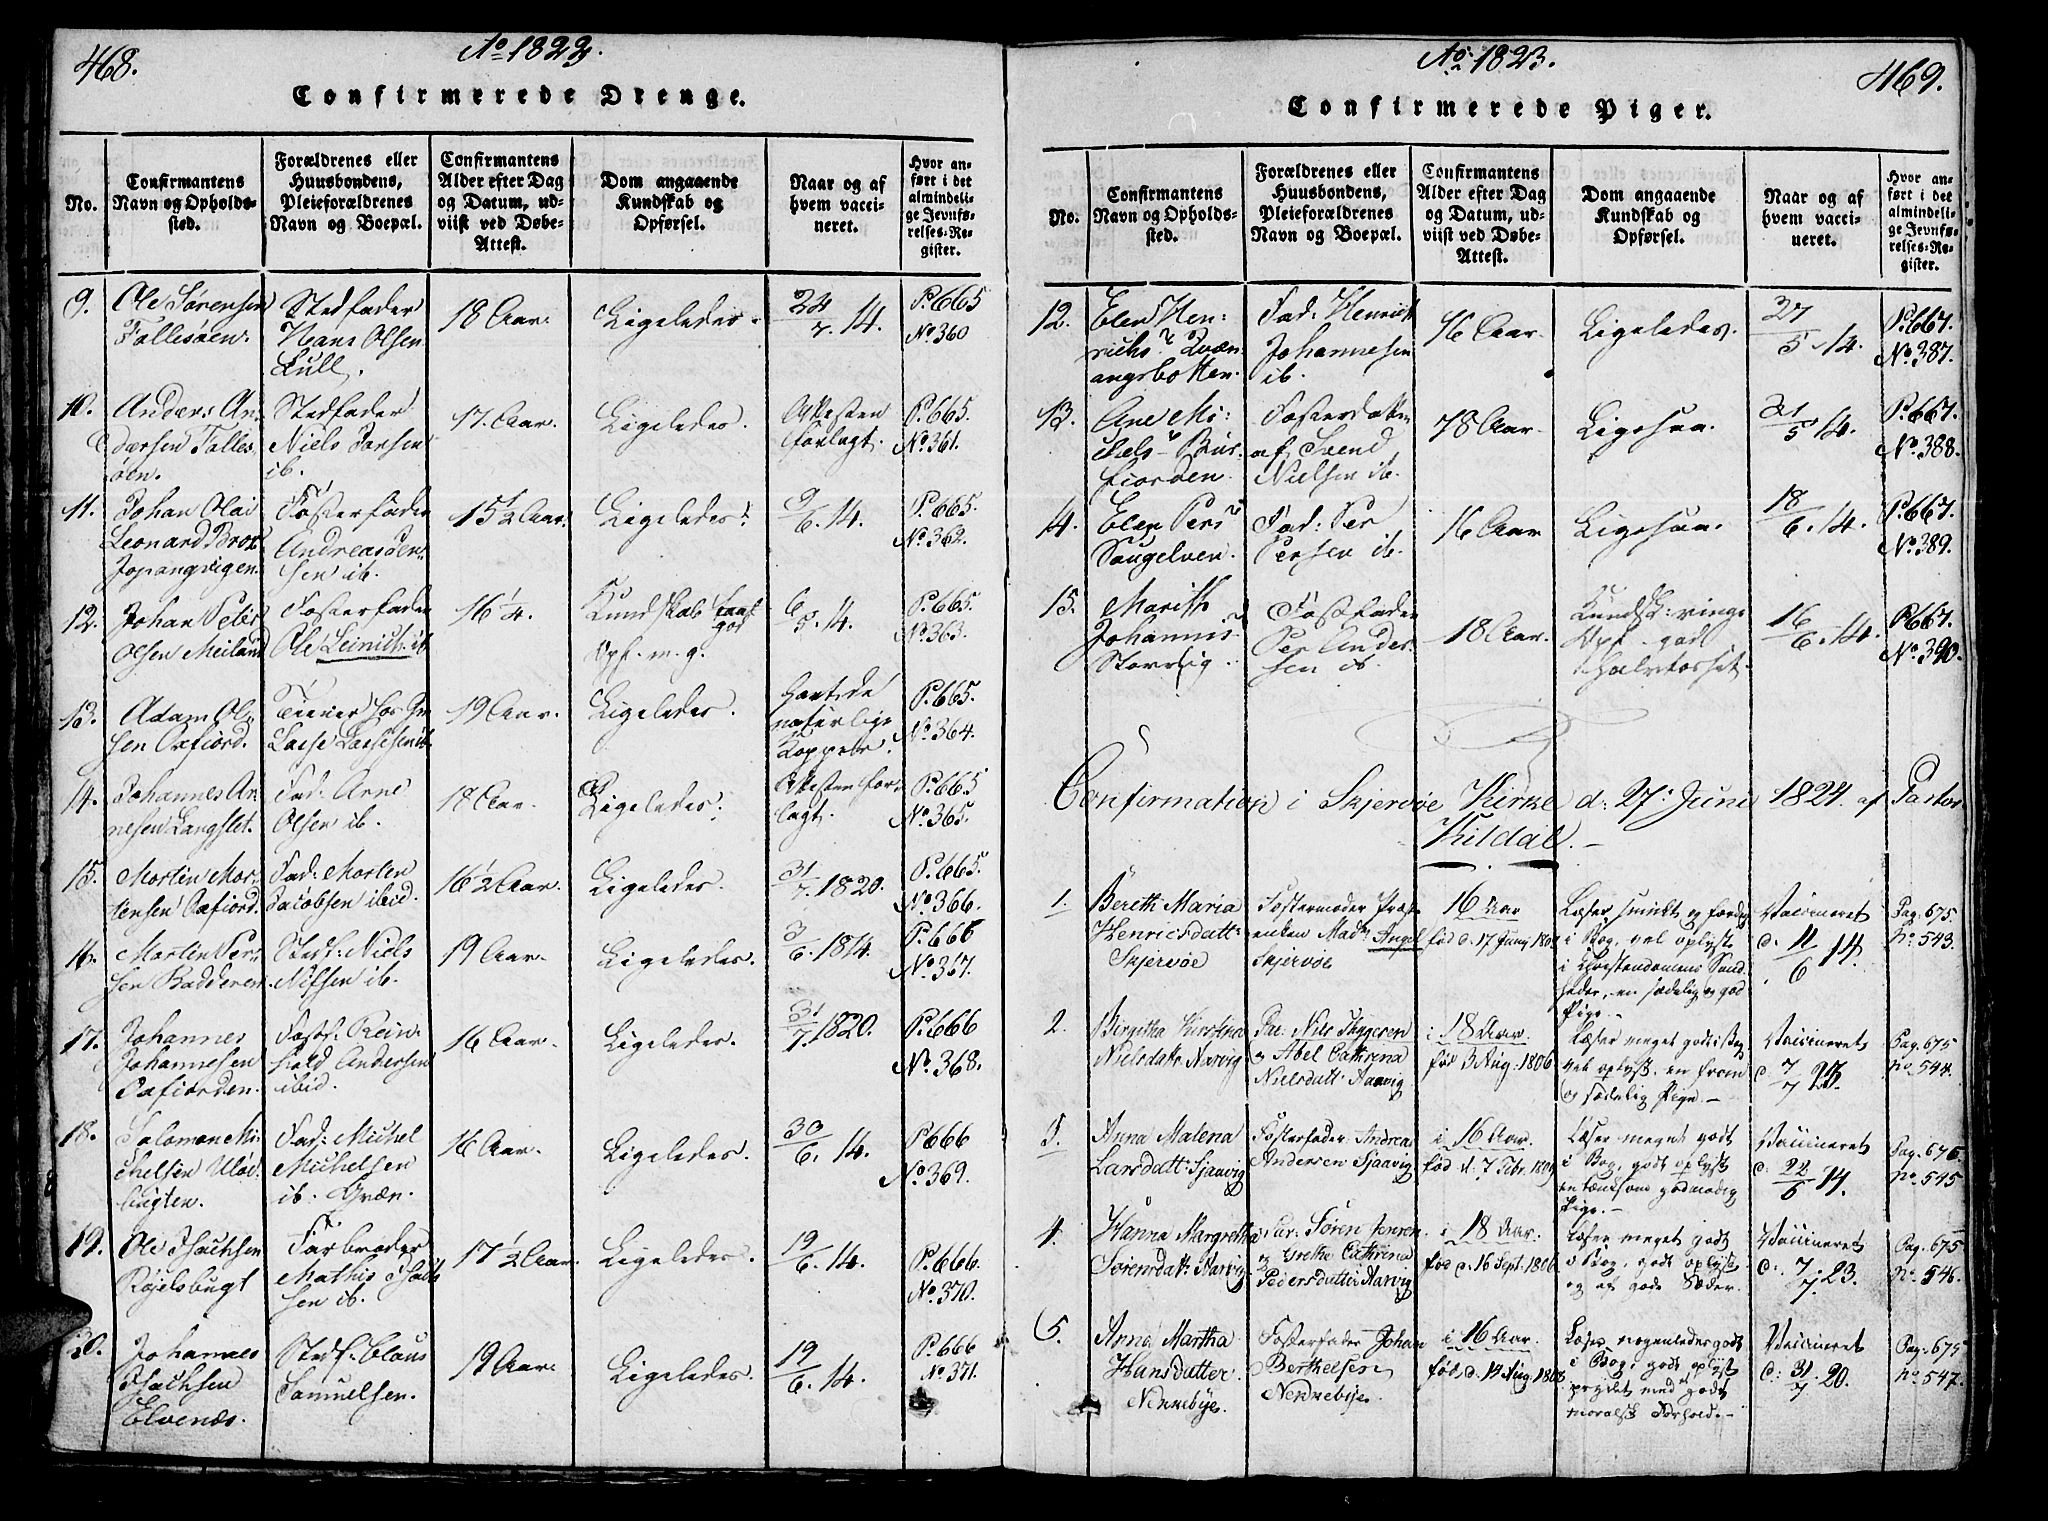 468.
Ao 1823.
Confirmerede Drenge.
No.
Confirmantens
Navn og Opholds-
sted.
Forældrenes eller
Huusbondens,
Pleieforældrenes
Navn og Boepæl.
Confirmantens
Alder efter Dag
og Datum, ud-
viist ved Døbe-
Attest.
Dom angaaende
Kundskab og
Opførsel.
Naar og af
hvem vacci-
neret.
Hvor an-
ført i det
almindeli-
ge Jevnfø-
relses-Re-
gister.
9.
Ole Sørensen
Tallesøen.
Stedfader
Hans Olsen
Lull.
18 Aar.
Ligeledes.
24/7. 14.
P. 665
No. 360
10.
Anders An-
dersen Talles
øen.
Stedfader
Niels Jansen
ib.
17. Aar.
Ligeledes.
Attesten
forlagt.
P. 665.
No. 361.
11.
Johan Olai
Leonard Brox
Fosterfader
Andreas
sen ib.
15 1/2 Aar.
Ligeledes.
9/6. 14.
P. 665.
No. 362.
12.
Johan Peter
Olsen Meiland
Fosterfader
Ole Leinich. ib
16 1/4.
Kundskab
god
Opf. m. g.
6/5. 14.
P. 665.
No. 363.
13.
Adam Ol-
sen Oxfiord.
Tiener hos
Lasse Lassesen ib.
19 Aar.
Ligeledes.
Havt de
naturlige
Kopper.
P. 665.
No. 364.
14.
Johannes Ar-
nesen Langslet.
Fad: Arne
Olsen ib.
18 Aar.
Ligeledes.
Attesten for-
lagt.
P. 665
No. 365.
15.
Morten Mor-
tensen Oxfiord.
Fad: Morten
Jacobsen ibid.
16 1/2 Aar.
Ligeledes.
31/7. 1820.
P. 665.
No. 366.
16.
Morten Per-
sen Badderen.
Stedf. Niels
Nilsen ib.
19 Aar.
Ligeledes.
3/6. 1814.
P. 666
No. 367.
17.
Johannes
Johannesen
Oxfiorden.
Fostf. Rein-
hold Andersen
ibid.
16 Aar.
Ligeledes.
31/7. 1820.
P. 666
No. 368.
18.
Salomon Mi-
chelsen Uløe
bugten.
Fad: Michel
Michelsen
ib. Qvæn.
16 Aar.
Ligeledes.
30/6. 14.
P. 666
No. 369.
19.
Ole Isachsen
Røjelsbugt
Farbroder
Mathis Isach
sen ib.
17 1/2 Aar.
Ligeledes.
19/6. 14.
P. 666.
No. 370.
20.
Johannes
Isachsen
Elvenæs.
Stedf. Claus
Samuelsen.
19 Aar.
Ligeledes.
19/6. 14.
P. 666
No. 371.
Ao. 1823.
469.
Confirmerede Piger.
No.
Confirmantens
Navn og Opholds-
sted.
Forældrenes eller
Huusbondens,
Pleieforældrenes
Navn og Boepæl.
Confirmantens
Alder efter Dag
og Datum, ud-
viist ved Døbe-
Attest.
Dom angaaende
Kundskab og
Opførsel.
Naar og af
hvem vacci-
neret.
Hvor an-
ført i det
almindeli-
ge Jevnfø-
relses-Re-
gister.
12.
Elen Hen-
richsd. Qvæn-
angsbotten.
Fad: Henrich
Johannesen
ib.
16 Aar.
Ligeledes.
27/5. 14.
P. 667.
No. 387.
13.
Ane Mi-
chels Bur-
fiorden
Fosterdatter
af Svend
Nielsen ib.
18 Aar.
Ligesaa.
21/5. 14.
P. 667.
No. 388.
14.
Elen Persd
Saugelven.
Fad: Per
Persen ib.
16 Aar
Ligesaa.
18/6. 14.
P. 667.
No. 389.
15.
Marith
Johannisd
Storvig.
Fostfader
Per Ander-
sen ib.
18 Aar.
Kundsk: ringe
Opf. god
16/6. 14.
P. 667.
No. 390.
Confirmation i Skjervøe Kirke d: 27. Juni 1824. af Pastor
Kildal.
1.
Bereth Maria
Henrichsdatt:
Skjervøe
Fostermoder Præste
enken Mad. Angel
Skjervøe
16 Aar
fød d. 17 Juny 180
Læser smukt og færdig
i Bog, vel oplyst
i Christendomens Sand
heder, en sædelig og god
Pige.
Vaccineret
d. 11/6 14.
Pag. 675.
no. 543.
2.
Birgitha Kirstina
Nielsdatt: Aarvig
Par. Nils Thygesen
og Abel Cathrina
Nielsdatt: Aarvig
i 18 Aar.
fød 3 Aug: 1806
Læser meget godt i Bog
vel oplyst, en from
og sædelig Pige.
Vaccineret
d. 7/7 23.
Pag. 675
no. 544.
3.
Anna Malena
Larsdatt: Sjaavig
Fosterfader: Andreas
Andersen Sjaavig
i 16 Aar.
fød d. 7 Febr. 1809
Læser meget godt
i Bog, godt oplyst
en tænksom godmodig
Pige.
Vaccineret
d: 22/6 14.
Pag. 675
no. 545
4.
Hanna Margretha
Sørensdatt: Aarvig.
Par. Søren Jensen
og Grethe Cathrina
Pedersdatter Aarvig
i 18 Aar.
fød d. 16 Sept. 1806
Læser meget godt
i Bog, godt oplyst
og af gode Sæder.
Vaccineret
d: 7/7. 23.
Pag. 675
no. 546.
5.
Anna Martha
Hansdatter
Nennebye.
Fosterfader Johan
Berthelsen
Nennebye.
i 16 Aar.
fød d. 14 Aug. 1808
Læser nogenledes godt
i Bog, godt oplyst
prydet med godt
moralsk Forhold.
Vaccineret
d: 31/7 20.
Pag. 675
no. 547.